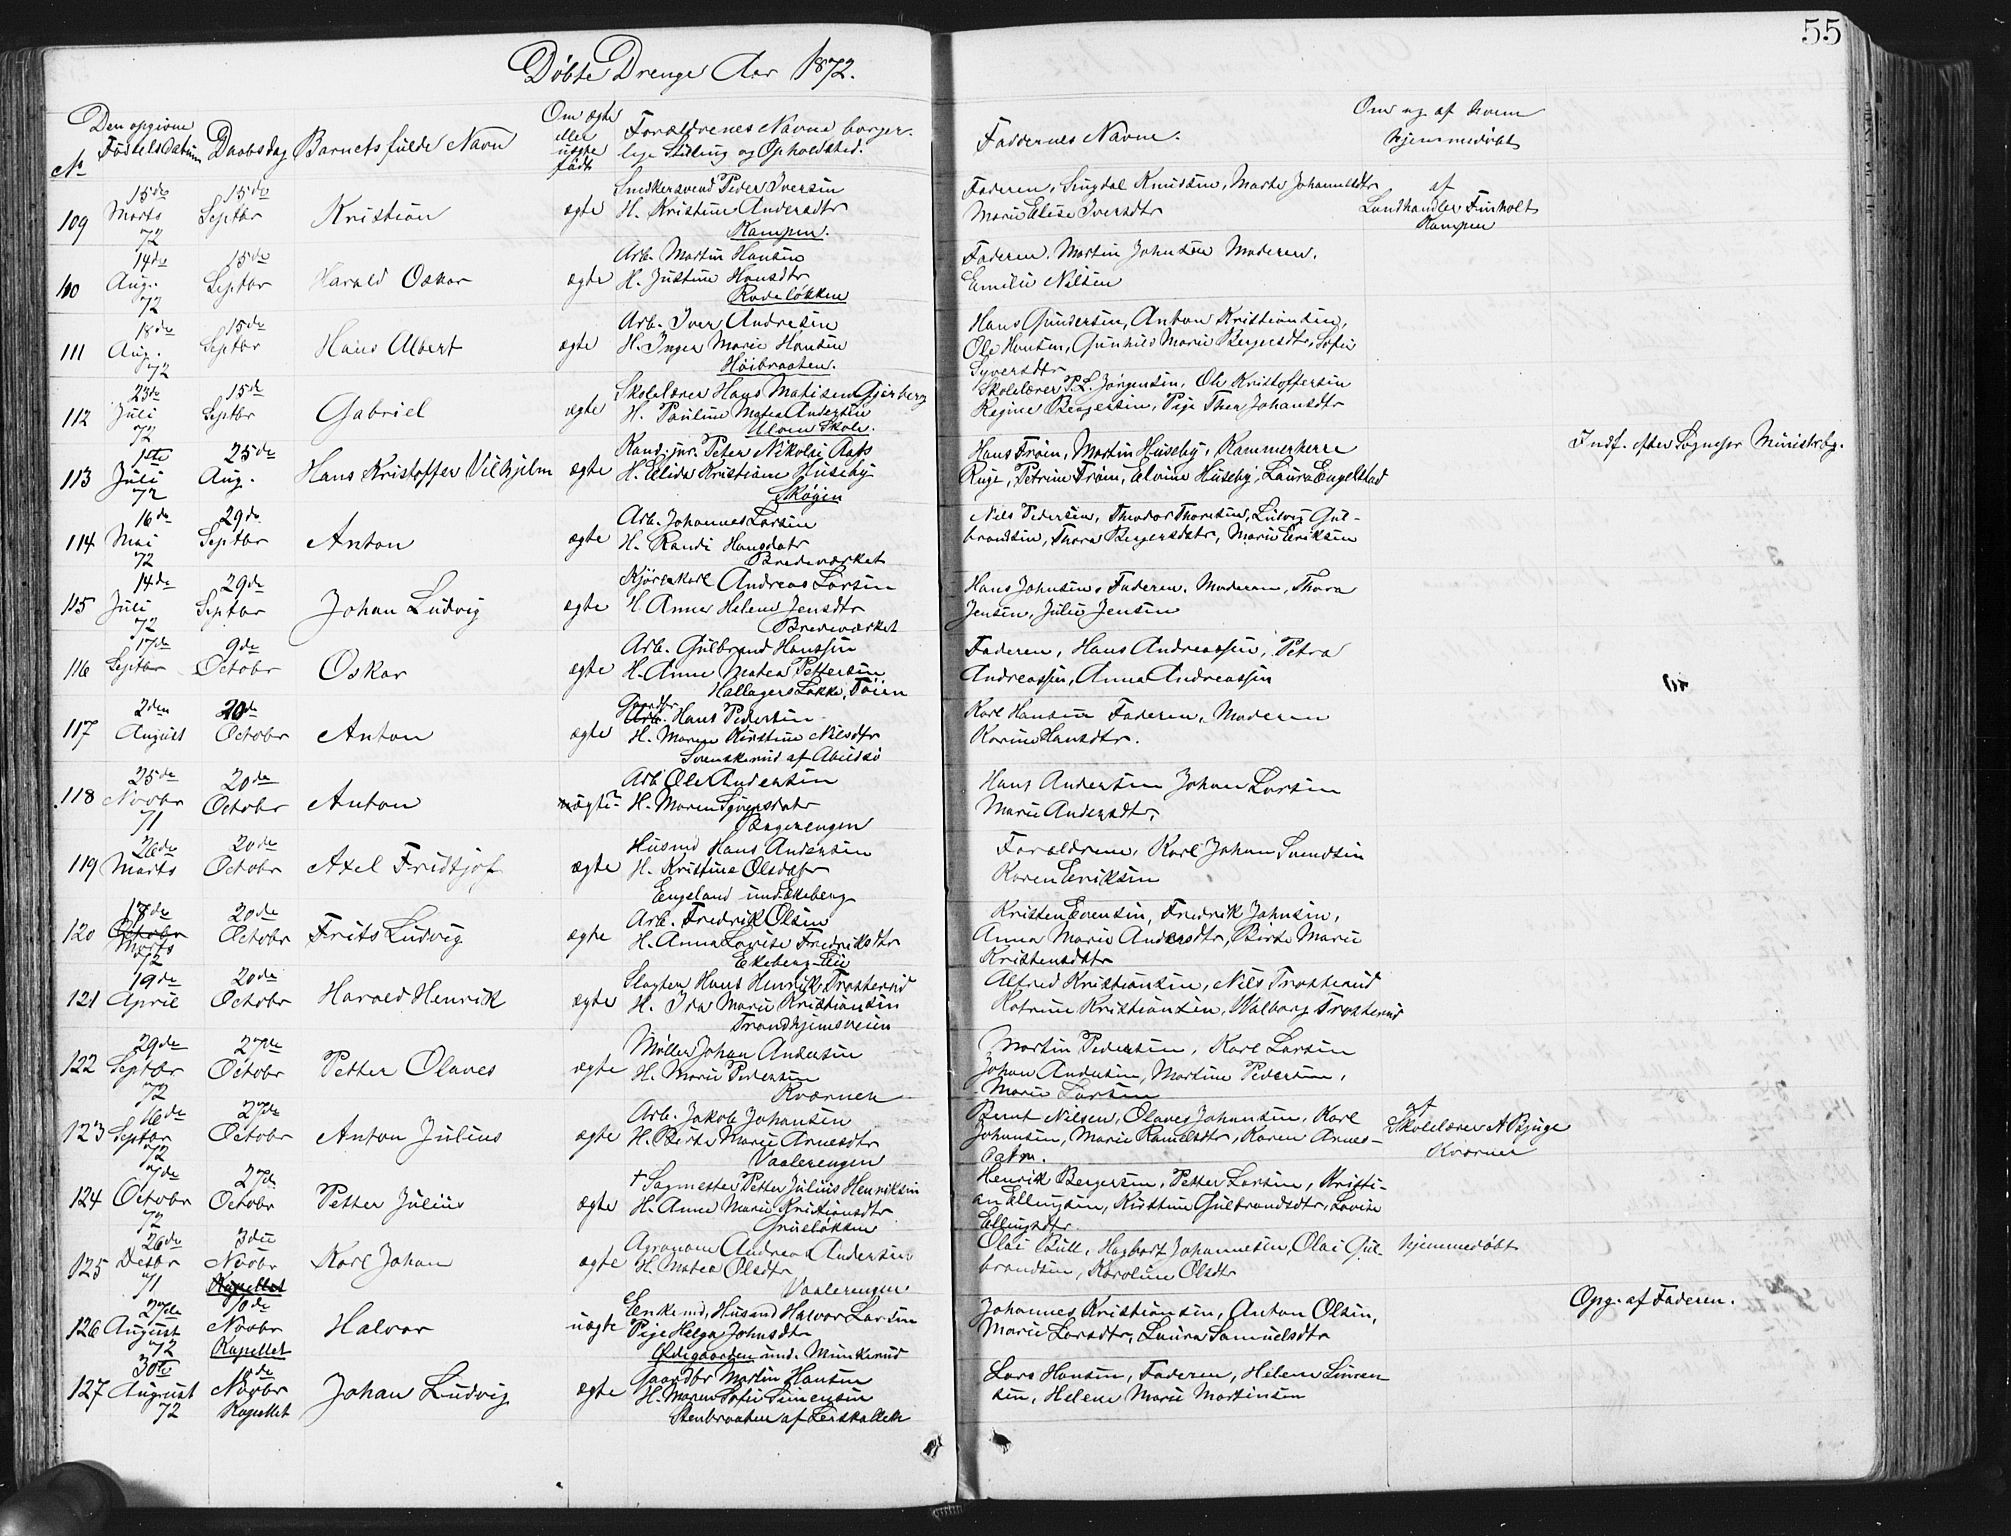 55
Døbte Drenge Aar 1872.
No
Den opgivne Fødselsdatum
Daabsdag
Barnets fulde Navn
Om ægte eller uægte født
Forældrenes Navne borgerlige Stilling og Opholdsted.
Faddernes Navne.
Om og af hvem hjemmedøbt
109 15de Marts 72 15de Septbr Kristian ægte
Snedkersvend Peder Iversen
H. Kristine Andersdtr
Kampen.
Faderen, Knudsen, Marte Johannesdtr
Marie Elise Iversdtr
af
Landhandler Finholt
Kampen
110 14de Aug. 72 15de Septbr Harald Oskar ægte
Arb. Martin Hansen
H. Justine Hansdtr
Rodeløkken
Faderen. Martin Johnsen Moderen.
Emilie Nilsen
111 18de Aug. 72 15de Septbr Hans Albert ægte
Arb. Iver Andresen
H. Inger Marie Hansen
Høibraaten.
Hans Gundersen, Anton Kristiansen,
Ole Hansen, Gunhild Marie Bergersdtr, Sofie
Syversdtr
112 23de Juli 72 15de Septbr Gabriel ægte
Skolelærer Hans Matisen Gjerberg
H. Pauline Matea Andersen
Ulven Skole.
Skolelærer P. L. Jørgensen, Ole Kristoffersen
Regine Bergersen, Pige Thea Johansdtr
113 1ste Juli 72 25de Aug. Hans Kristoffer Vilhjelm ægte
Kand. jur. Peter Nikolai Aass
H. Elida Kristiane Huseby
Skøien
Hans Frøen, Martin Huseby, Kammerherre
Ruge, Petrine Frøen, Elvine Huseby, Laura Engelstad
Indf. efter Sognepr Ministbog.
114 16de Mai 72 29de Septbr Anton ægte
Arb. Johannes Larsen
H. Randi Hansdatr
Bredeværket
Nils Pedersen, Theodor Thoresen, Ludvig Gul-
brandsen, Thora Bergersdatr, Marie Eriksen
115 14de Juli 72 29de Septbr Johan Ludvig ægte
Kjørekarl Andreas Larsen
H. Anne Helene Jensdtr
Bredeværket
Hans Johnsen, Faderen. Moderen, Thora
Jensen, Julie Jensen
116 17de Septbr 9de Octobr Oskar ægte
Arb. Gulbrand Hanssen
H. Anne Matea Pettersen
Hallagers Løkke, Tøien
Faderen, Hans Andreassen, Petra
Andreassen, Anna Andreassen
117 2den August 20de Octobr Anton ægte
Gaardbr. Hans Pedersen
H. Maren Kirstine Nilsdtr
Svenskerud af Abildsø
Karl Hansen Faderen, Moderen
Karine Hansdtr.
118 25de Novbr 71 20de Octobr Anton ægte
Arb Ole Andersen
H. Maren Syversdatr
Bagerengen
Hans Andersen Johan Larsen
Marie Andersdtr.
119 26de Marts 20de Octobr Axel Fridtjof ægte
Husmd Hans Andersen
H. Kristine Olsdatr
Engeland und. Ekeberg
Forældrene. Karl Johan Svendsen
Karen Eriksen
120 18de Octobr Marts 72 20de Octobr Frits Ludvig ægte
Arb. Fredrik Olsen
H. Anna Lovise Fredriksdtr
Ekeberg Lii
Kristen Evensen, Fredrik Johnsen,
Anna Marie Andersdtr, Birte Marie
Kristensdtr
121 19de April 20de Octobr Harald Henrik ægte
Slagter Hans Henrik Trosterud
H. Ida Marie Kristiansen
Trondhjemsveien
Alfred Kristiansen, Nils Trosterud
Katrine Kristiansen, Walborg Trosterud
122 29de Septbr 72 27de Octobr Petter Olaves ægte
Møller Johan Andersen
H. Marie Pedersen
Kværnen
Martin Pedersen, Karl Larsen
Johan Andersen, Martine Pedersen,
Marie Larsen
123 16de Septbr 72 27de Octobr Anton Julius ægte
Arb. Jakob Johansen
H. Birte Marie Arnesdtr
Vaalerengen
Bernt Nilsen, Olaves Johansen, Karl
Johansen, Marie Ramelsdtr, Karen Arnes-
datr.
af
Skolelærer A Bjuge
Kværner
124 7de Octobr 72 27de Octobr Petter Julius ægte
† Sagmester Petter Julius Henriksen
H. Anne Marie Kristiansdtr
Grueløkken
Henrik Bergersen, Petter Larsen, Kristi-
an Ellingsen, Kirstine Gulbrandsdtr, Lovise
Ellingsdtr
125 26de Desbr 71 3die Novbr Kapellet Karl Johan ægte
Agronom Andreas Andersen
H. Matea Olsdtr
Vaalerengen
Olai Bull, Hagbart Johannesen, Olai Gul-
brandsen, Karoline Olsdtr
hjemmedøbt
126 27de August 72 10de Novbr Kapellet Halvor uægte
Enkemd, Husmd Halvor Larsen
Pige Helga Johnsdtr
Ødegaarden und. Munkerud
Johannes Kristiansen, Anton Olsen,
Marie Larsdtr, Laura Samuelsdtr
Opg. af Faderen.
127 30te August 72 10de Novbr Kapellet Johan Ludvig ægte
Gaardbr Martin Hansen
H. Maren Sofie Simensen
Stenbraaten af Leirskallen
Lars Hansen, Faderen, Helene Simen-
sen, Helene Marie Martinsen